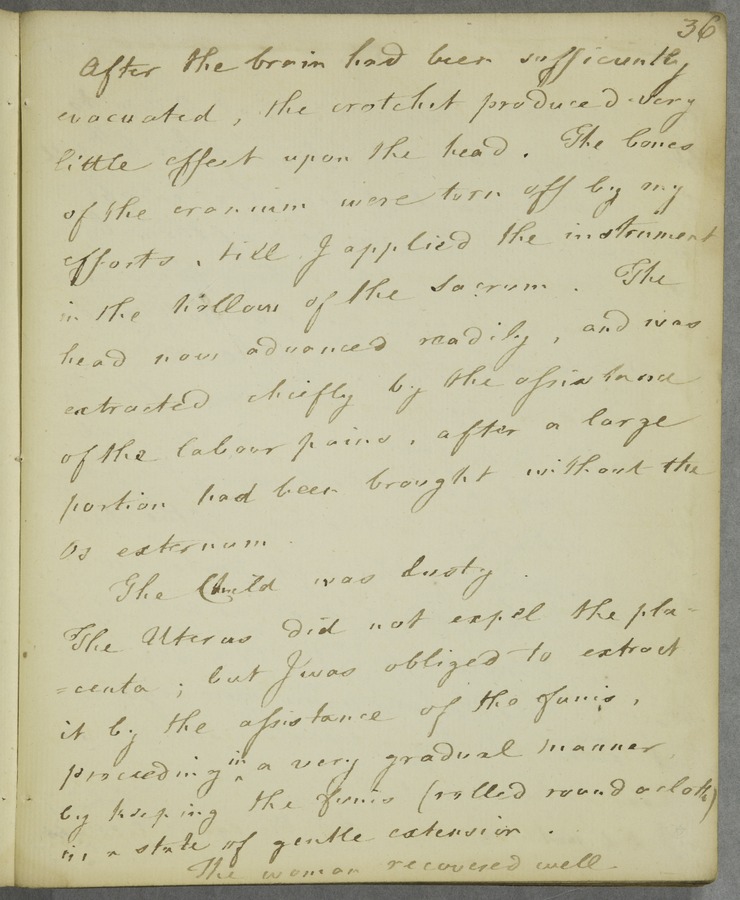 36
After the brain had been sufficiently
evacuated, the crotchet produced very
little effect upon the head. The bones
of the cranium were torn off by my
efforts, till I applied the instrument
in the hollow of the Sacrum. The
head now advanced readily, and was
extracted chiefly by the assistance
of the labour pains, after a large
portion had been brought without the
Os externum.
The Child was lusty.
The Uterus did not expel the pla-
=centa; but I was obliged to extract
it by the assistance of the funis,
proceeding in a very gradual manner,
by keeping the funis (rolled round a cloth)
in a state of gentle extension.
The woman recovered well.